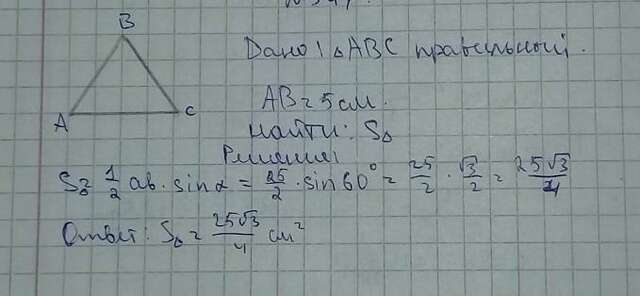 B
Дано: △ABC правильный.
AB = 5 см.
A
C
Найти: S△
Решение:
S△ = 1/2 ab · sin α = 25/2 · sin 60° = 25/2 · √3/2 = 25√3/4
Ответ: S△ = 25√3/4 см²